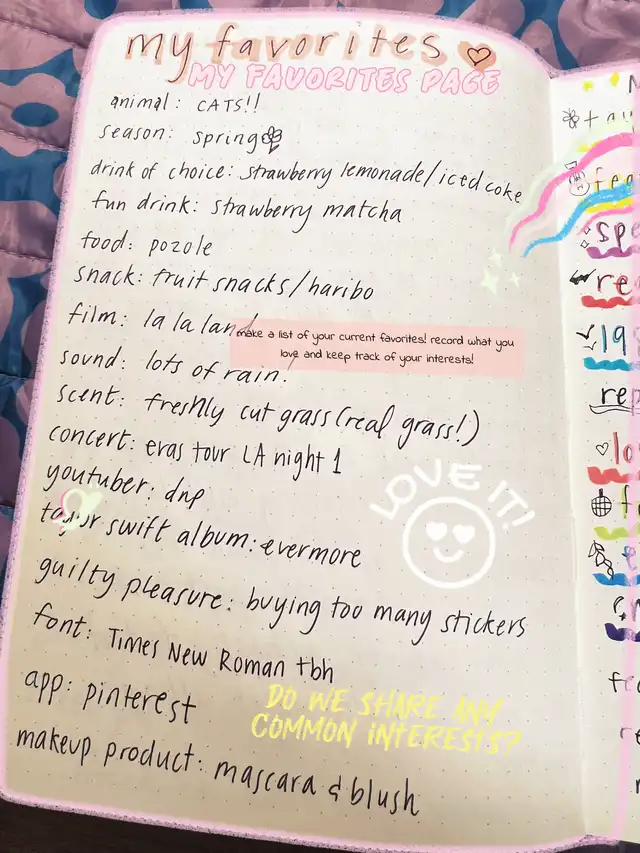 my favorites
MY FAVORITES PAGE
animal: CATS!!
season: spring
drink of choice: strawberry lemonade/iced coke
fun drink: strawberry matcha
food: pozole
snack: fruit snacks/haribo
film: la la land
make a list of your current favorites! record what you
love and keep track of your interests!
sound: lots of rain.
scent: freshly cut grass (real grass!)
concert: eras tour LA night 1
youtuber: dnp
LOVE IT!
taylor swift album: evermore
guilty pleasure: buying too many stickers
font: Times New Roman tbh
app: pinterest
DO WE SHARE ANY
COMMON INTERESTS?
makeup product: mascara & blush